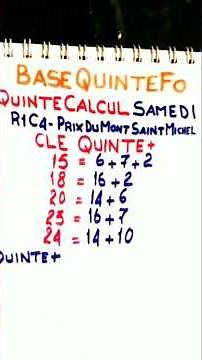 BASEQUINTEFO
QUINTECALCUL SAMEDI
R1C4-PRIX DU MONT SAINT MICHEL
CLE QUINTE+
15 = 6+7+2
18 = 16+2
20 = 14+6
23 = 16+7
24 = 14+10
QUINTE+